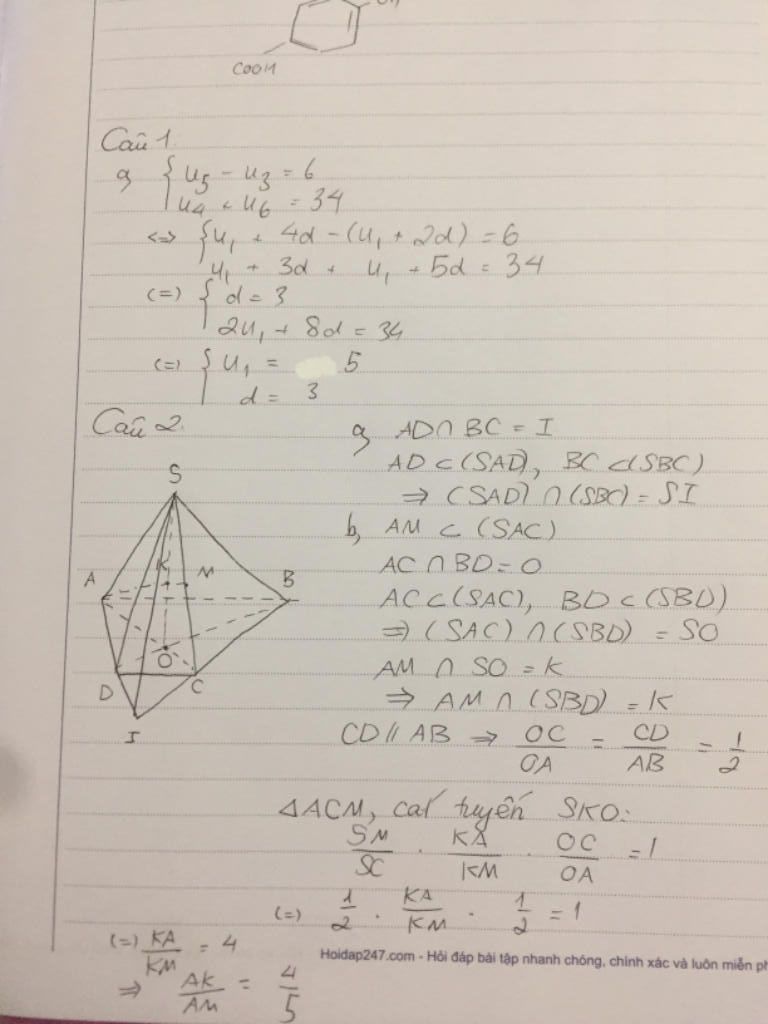 COOH
Câu 1
a, { u5 - u3 = 6
u4 + u6 = 34
<=> { u1 + 4d - (u1 + 2d) = 6
u1 + 3d + u1 + 5d = 34
(=) { d = 3
2u1 + 8d = 34
(=) { u1 = 5
d = 3
Câu 2
S
A
K
M
B
O
D
C
I
a, AD ∩ BC = I
AD ⊂ (SAD), BC ⊂ (SBC)
⇒ (SAD) ∩ (SBC) = SI
b, AM ⊂ (SAC)
AC ∩ BD = O
AC ⊂ (SAC), BD ⊂ (SBD)
⇒ (SAC) ∩ (SBD) = SO
AM ∩ SO = K
⇒ AM ∩ (SBD) = K
CD // AB ⇒ OC/OA = CD/AB = 1/2
ΔACM, cát tuyến SKO:
SM/SC . KA/KM . OC/OA = 1
(=) 1/2 . KA/KM . 1/2 = 1
(=) KA/KM = 4
⇒ AK/AM = 4/5
Hoidap247.com - Hỏi đáp bài tập nhanh chóng, chính xác và luôn miễn ph